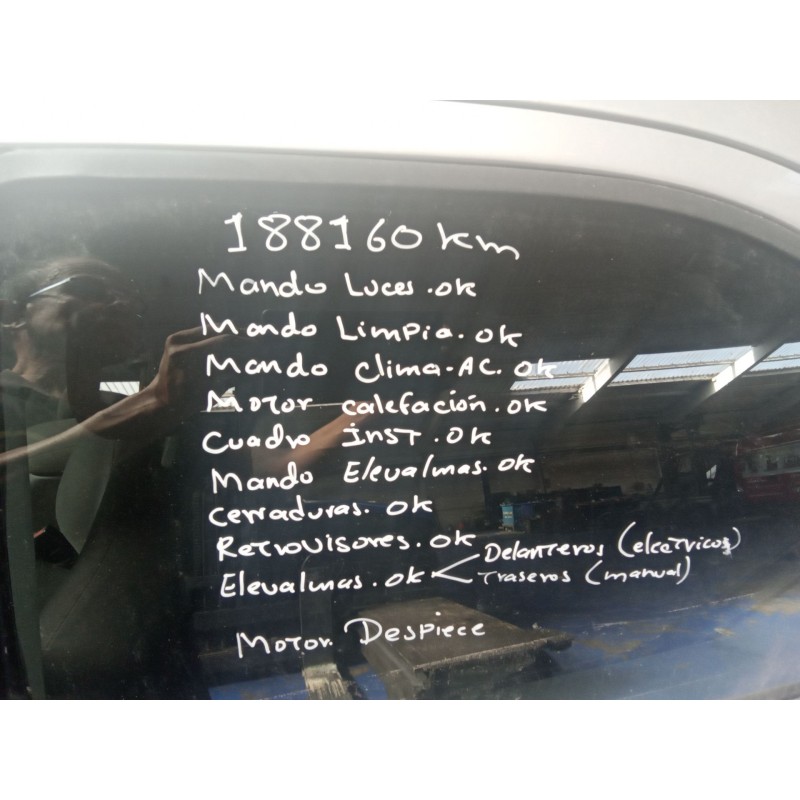 188160 km
Mando Luces. ok
Mando Limpia. ok
Mando clima-AC. ok
Motor calefación. ok
Cuadro inst. ok
Mando Elevalmas. ok
cerraduras. ok
Retrovisores. ok
Elevalmas. ok < Delanteros (elcetricos)
Traseros (manual)
Motor Despiece